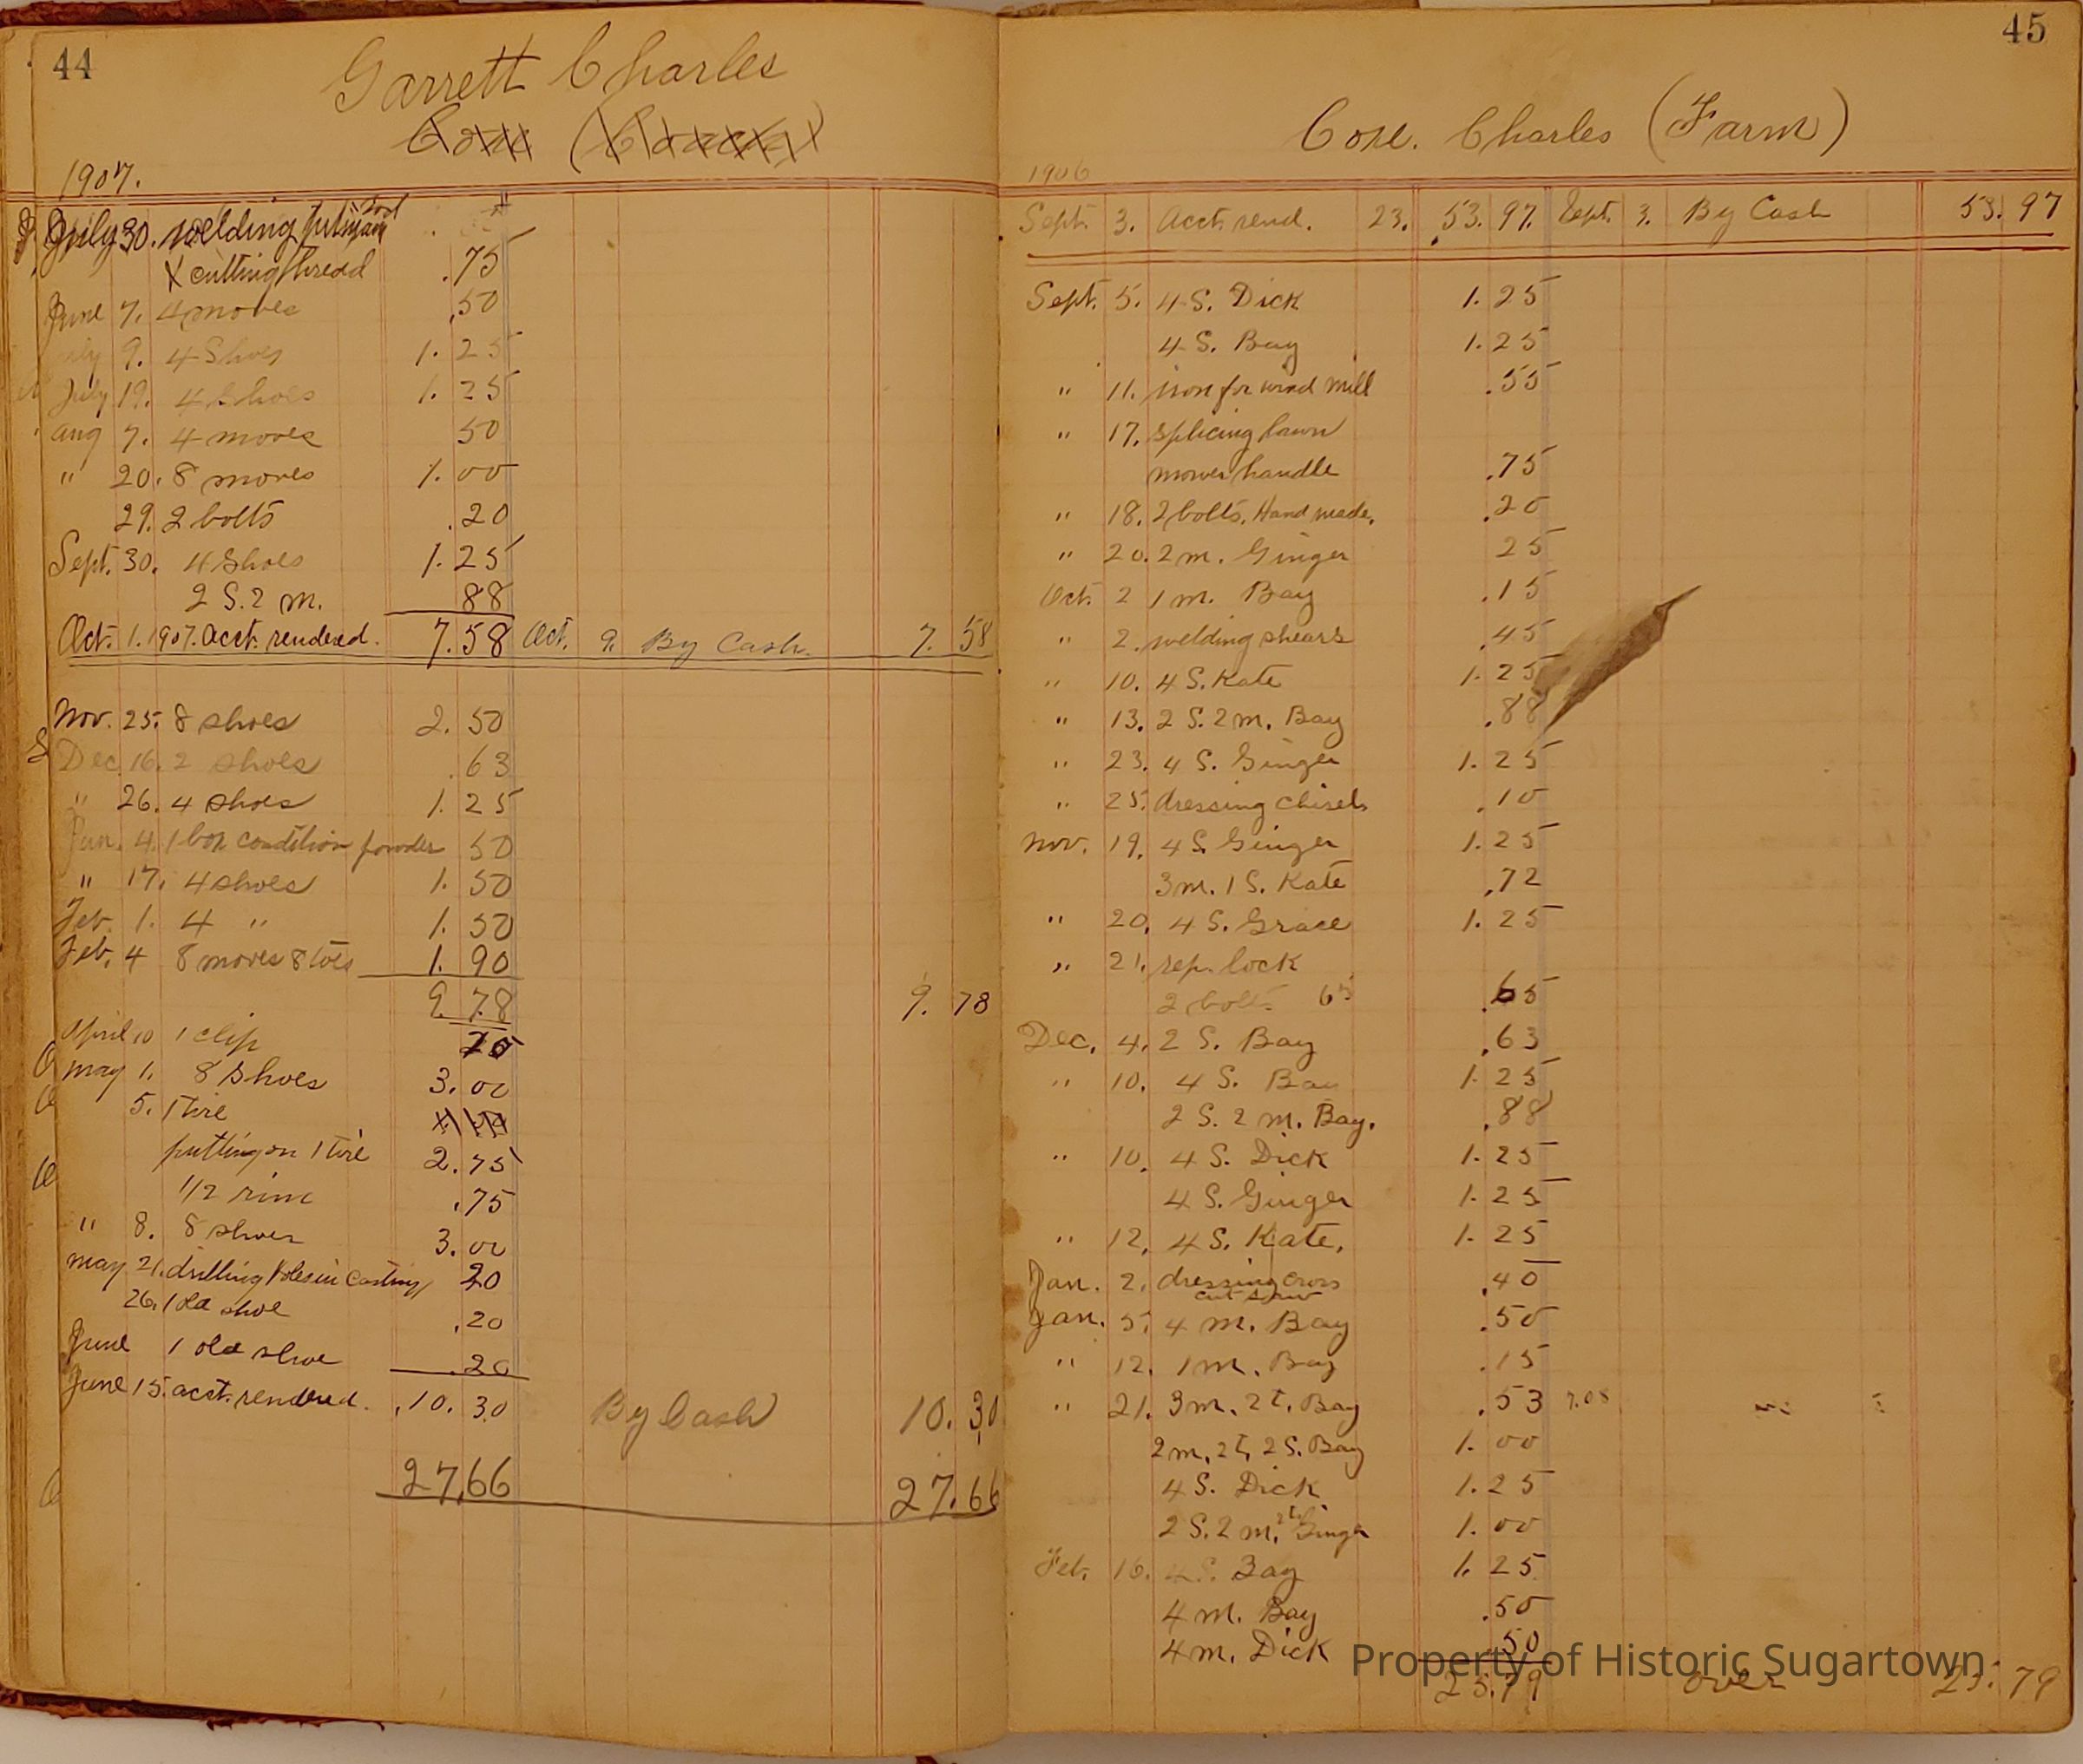 44
Garrett Charles
1907.
July 30. welding
& cutting thread .75
June 7. 4 moves .50
July 9. 4 Shoes 1.25
July 19. 4 Shoes 1.25
Aug 7. 4 moves 50
" 20. 8 moves 1.00
29. 2 bolts .20
Sept. 30. 4 Shoes 1.25
2 S. 2 m. 88
Oct. 1. 1907. acct. rendered. 7.58 Oct. 9. By Cash. 7.58
Nov. 25. 8 shoes 2.50
Dec. 16. 2 shoes .63
" 26. 4 shoes 1.25
Jan. 4. 1 box condition powder 50
" 17. 4 shoes 1.50
Feb. 1. 4 " 1.50
Feb. 4 8 moves 8 toes 1.90
9.78 9.78
April 10 1 clip 20
May 1. 8 Shoes 3.00
5. 1 tire
putting on 1 tire 2.75
1/2 rim .75
" 8. 8 shoes 3.00
May 21. drilling holes in casting 20
26. 1 old shoe .20
June 1 old shoe .20
June 15. acct. rendered. 10.30 By Cash 10.30
27.66 27.66
45
Coxe. Charles (Farm)
1906
Sept. 3. Acct. rend. 23. 53.97. Sept. 3. By Cash 53.97
Sept. 5. 4 S. Dick 1.25
4 S. Bay 1.25
" 11. iron for wind mill .55
" 17. splicing lawn
mower handle .75
" 18. 2 bolts. Hand made. .20
" 20. 2 m. Ginger 25
Oct. 2 1 m. Bay .15
" 2. welding shears .45
" 10. 4 S. Kate 1.25
" 13. 2 S. 2 m. Bay .88
" 23. 4 S. Ginger 1.25
" 25. dressing chisels .10
Nov. 19. 4 S. Ginger 1.25
3 m. 1 S. Kate .72
" 20. 4 S. Grace 1.25
" 21. rep. lock
2 bolts 65 .65
Dec. 4. 2 S. Bay .63
" 10. 4 S. Bay 1.25
2 S. 2 m. Bay. .88
" 10. 4 S. Dick 1.25
4 S. Ginger 1.25
" 12. 4 S. Kate. 1.25
Jan. 2. dressing cross .40
cut saw
Jan. 5. 4 m. Bay .50
" 12. 1 m. Bay .15
" 21. 3 m. 2 t. Bay .53 7.08
2 m. 2 t. 2 S. Bay 1.00
4 S. Dick 1.25
2 S. 2 m. 2 t. Ginger 1.00
Feb. 16. 4 S. Bay 1.25
4 m. Bay .50
4 m. Dick .50
25.79 over 25.79
Property of Historic Sugartown